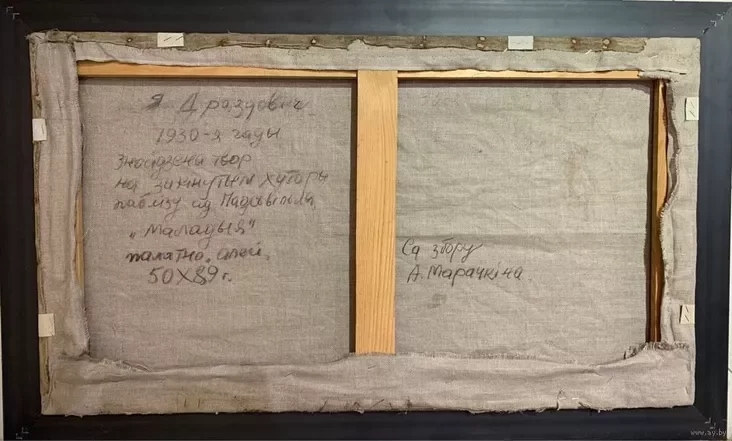 Я Драздовіч
1930-я гады
Знойдзены твор
на закінутым хутары
паблізу ад
"Маладыя"
палатно, алей,
50X89 г.
Са збору
А. Марачкіна
www.ay.by